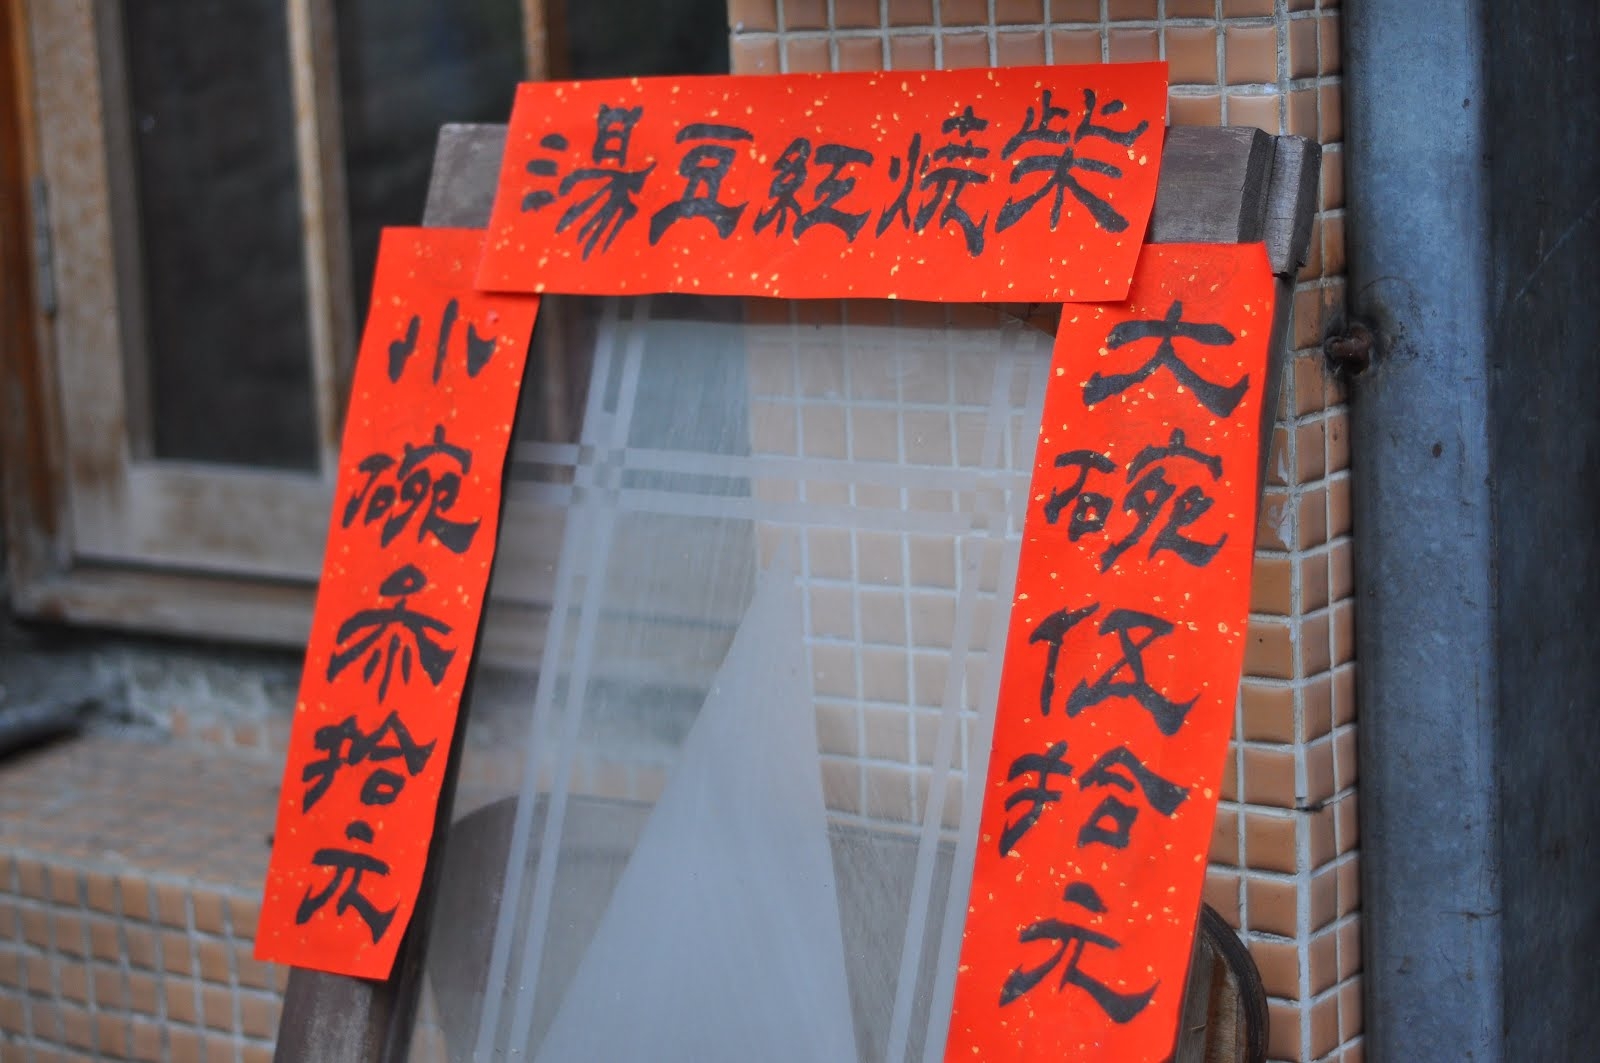 柴燒紅豆湯
大碗伍拾元
小碗叁拾元